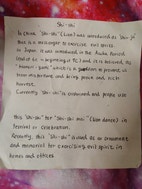 Shi-shi
In China "Shi-shi" (Lion) was introduced as "Shi-zi"
that is a messenger to exorcise evil spirit.
In Japan it was introduced in the Asuka Period
and it is believed, the
is pushed in present, is
from disturbing and bring peace and rich
harvest.
Currently Shi-shi is costumed and people use
this "Shi-shi" for "shi-shi mai" (lion dance) in
festival or celebration.
Recently, this "Shi-shi" is used as an ornament
and memorial for exorcising evil spirits in
homes and offices.